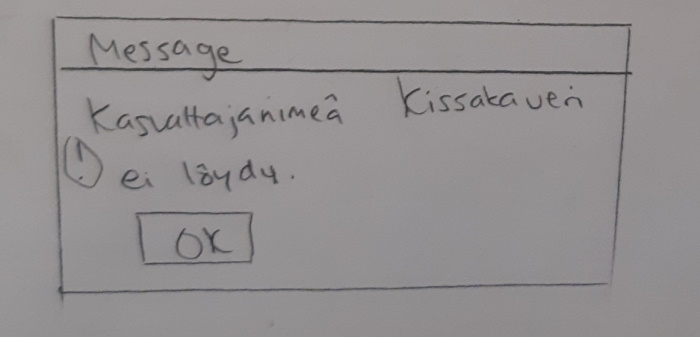 Message
Kasvattajanimeä Kissakaveri
! ei löydy.
OK